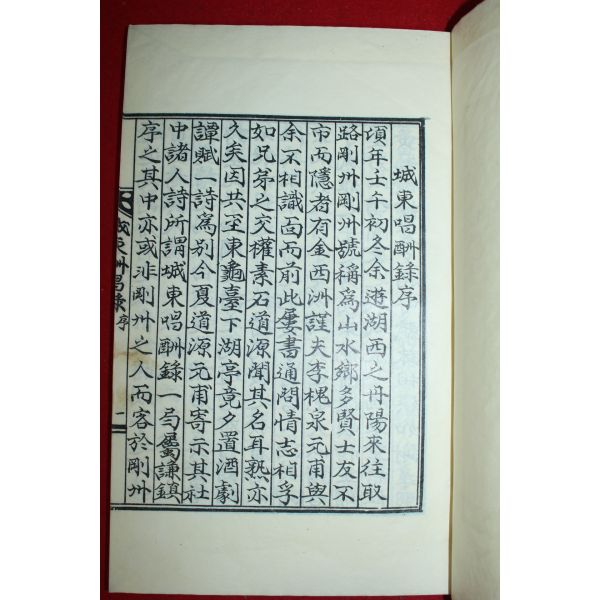 城東唱酬錄序
頃年壬午初冬余遊湖西之丹陽來往取
路剛州剛州號稱爲山水鄕多賢士友不
市而隱者有金西洲謹夫李槐泉元甫與
余不相識面而前此屢書通問情志相孚
如兄弟之交權素石道源聞其名耳熟亦
久矣因共至東龜臺下湖亭竟夕置酒劇
譚賦一詩爲別今夏道源元甫寄示其社
中諸人詩所謂城東唱酬錄一弓屬謙鎮
序之其中亦或非剛州之人而客於剛州
城東酬唱錄 序 一